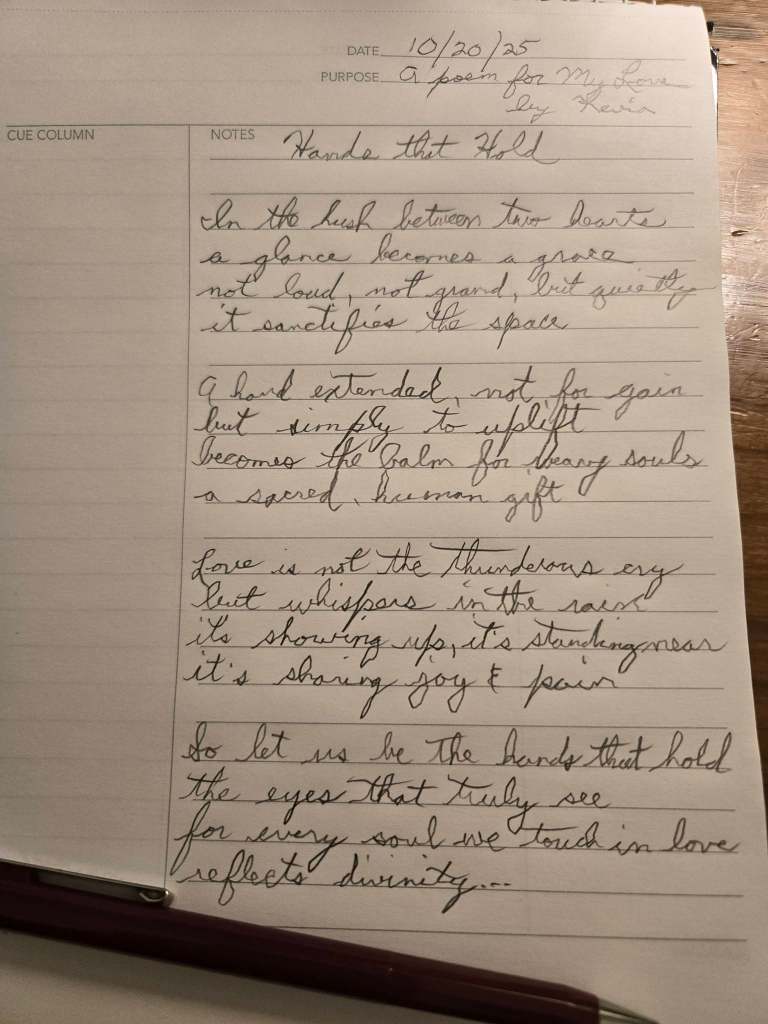 DATE 10/20/25
PURPOSE A poem for My Love
by Kevin
CUE COLUMN
NOTES Hands that Hold
In the hush between two hearts
a glance becomes a grace
not loud, not grand, but quietly
it sanctifies the space
A hand extended, not for gain
but simply to uplift
becomes the balm for weary souls
a sacred, human gift
Love is not the thunderous cry
but whispers in the rain
it's showing up, it's standing near
it's sharing joy & pain
So let us be the hands that hold
the eyes that truly see
for every soul we touch in love
reflects divinity...